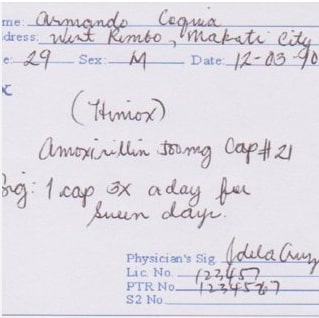 me: Armando Coquia
dress: West Rembo, Makati City
e: 29 Sex: M Date: 12-03-90
(Himox)
Amoxicillin 500mg Cap #21
Sig: 1 cap 3x a day for
seven days.
Physician's Sig. Jdela Cruz
Lic. No. 123457
PTR No. 1234567
S2 No.